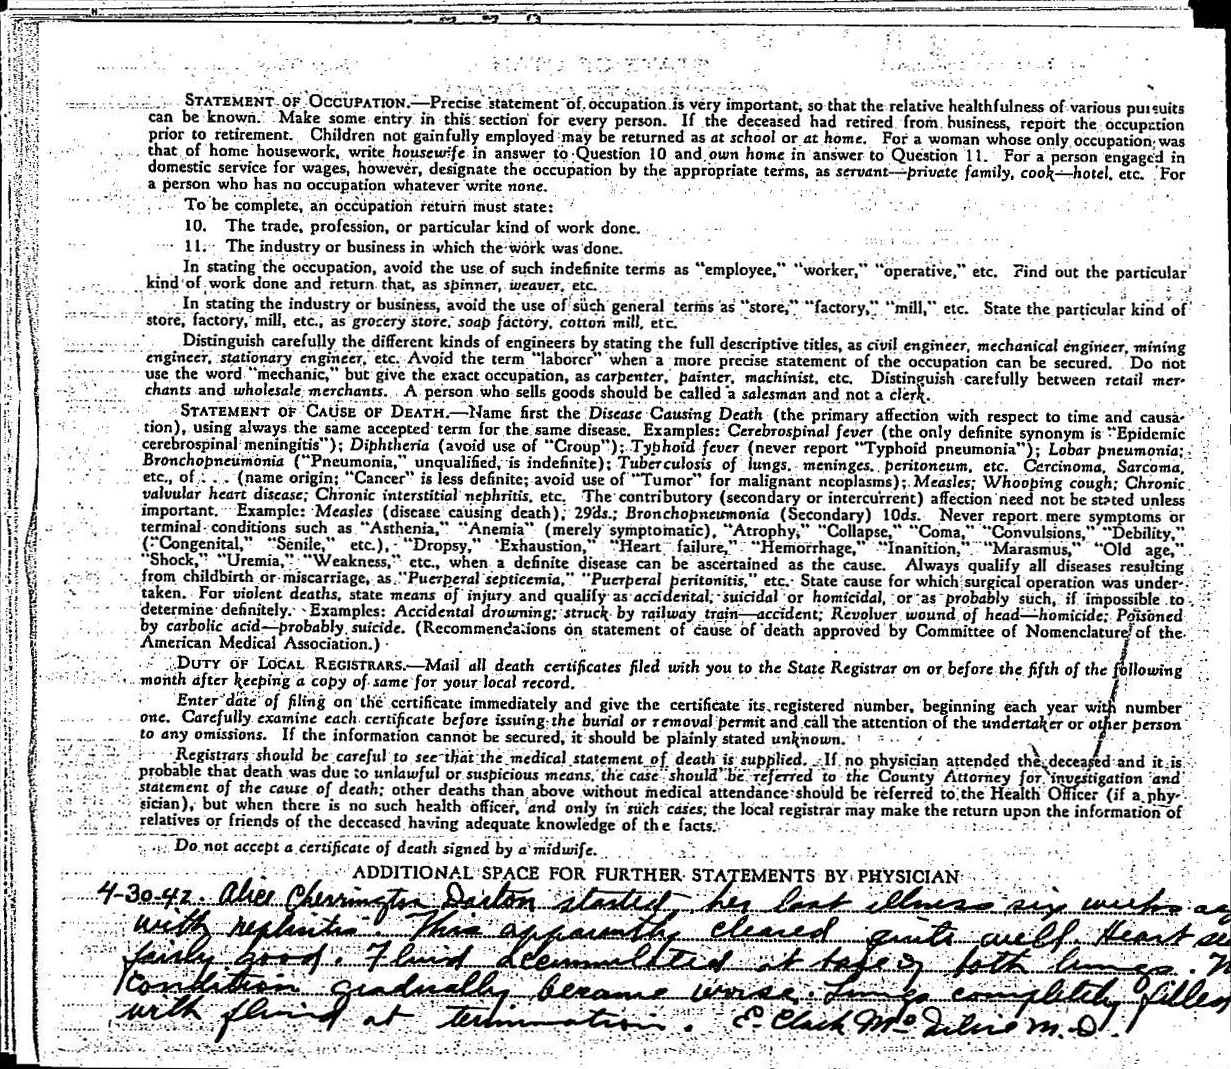 STATEMENT OF OCCUPATION.—Precise statement of occupation is very important, so that the relative healthfulness of various pursuits
can be known. Make some entry in this section for every person. If the deceased had retired from business, report the occupation
prior to retirement. Children not gainfully employed may be returned as at school or at home. For a woman whose only occupation was
that of home housework, write housewife in answer to Question 10 and own home in answer to Question 11. For a person engaged in
domestic service for wages, however, designate the occupation by the appropriate terms, as servant—private family, cook—hotel, etc. For
a person who has no occupation whatever write none.
To be complete, an occupation return must state:
10. The trade, profession, or particular kind of work done.
11. The industry or business in which the work was done.
In stating the occupation, avoid the use of such indefinite terms as "employee," "worker," "operative," etc. Find out the particular
kind of work done and return that, as spinner, weaver, etc.
In stating the industry or business, avoid the use of such general terms as "store," "factory," "mill," etc. State the particular kind of
store, factory, mill, etc., as grocery store, soap factory, cotton mill, etc.
Distinguish carefully the different kinds of engineers by stating the full descriptive titles, as civil engineer, mechanical engineer, mining
engineer, stationary engineer, etc. Avoid the term "laborer" when a more precise statement of the occupation can be secured. Do not
use the word "mechanic," but give the exact occupation, as carpenter, painter, machinist, etc. Distinguish carefully between retail mer-
chants and wholesale merchants. A person who sells goods should be called a salesman and not a clerk.
STATEMENT OF CAUSE OF DEATH.—Name first the Disease Causing Death (the primary affection with respect to time and causa-
tion), using always the same accepted term for the same disease. Examples: Cerebrospinal fever (the only definite synonym is "Epidemic
cerebrospinal meningitis"); Diphtheria (avoid use of "Croup"); Typhoid fever (never report "Typhoid pneumonia"); Lobar pneumonia;
Bronchopneumonia ("Pneumonia," unqualified, is indefinite); Tuberculosis of lungs, meninges, peritoneum, etc. Carcinoma, Sarcoma,
etc., of . . . (name origin; "Cancer" is less definite; avoid use of "Tumor" for malignant neoplasms); Measles; Whooping cough; Chronic
valvular heart disease; Chronic interstitial nephritis, etc. The contributory (secondary or intercurrent) affection need not be stated unless
important. Example: Measles (disease causing death), 29ds.; Bronchopneumonia (Secondary) 10ds. Never report mere symptoms or
terminal conditions such as "Asthenia," "Anemia" (merely symptomatic), "Atrophy," "Collapse," "Coma," "Convulsions," "Debility,"
("Congenital," "Senile," etc.), "Dropsy," "Exhaustion," "Heart failure," "Hemorrhage," "Inanition," "Marasmus," "Old age,"
"Shock," "Uremia," "Weakness," etc., when a definite disease can be ascertained as the cause. Always qualify all diseases resulting
from childbirth or miscarriage, as "Puerperal septicemia," "Puerperal peritonitis," etc. State cause for which surgical operation was under-
taken. For violent deaths, state means of injury and qualify as accidental, suicidal or homicidal, or as probably such, if impossible to
determine definitely. Examples: Accidental drowning; struck by railway train—accident; Revolver wound of head—homicide; Poisoned
by carbolic acid—probably suicide. (Recommendations on statement of cause of death approved by Committee of Nomenclature of the
American Medical Association.)
DUTY OF LOCAL REGISTRARS.—Mail all death certificates filed with you to the State Registrar on or before the fifth of the following
month after keeping a copy of same for your local record.
Enter date of filing on the certificate immediately and give the certificate its registered number, beginning each year with number
one. Carefully examine each certificate before issuing the burial or removal permit and call the attention of the undertaker or other person
to any omissions. If the information cannot be secured, it should be plainly stated unknown.
Registrars should be careful to see that the medical statement of death is supplied. If no physician attended the deceased and it is
probable that death was due to unlawful or suspicious means, the case should be referred to the County Attorney for investigation and
statement of the cause of death; other deaths than above without medical attendance should be referred to the Health Officer (if a phy-
sician), but when there is no such health officer, and only in such cases, the local registrar may make the return upon the information of
relatives or friends of the deceased having adequate knowledge of the facts.
Do not accept a certificate of death signed by a midwife.
ADDITIONAL SPACE FOR FURTHER STATEMENTS BY PHYSICIAN
4-30-42. Alice Cherrington Darton started her last illness six weeks
with nephritis. This apparently cleared quite well. Heart
fairly good. Fluid accumulated at base of both lungs.
Condition gradually became worse. Lungs completely filled
with fluid at termination. E. Clark M.D.